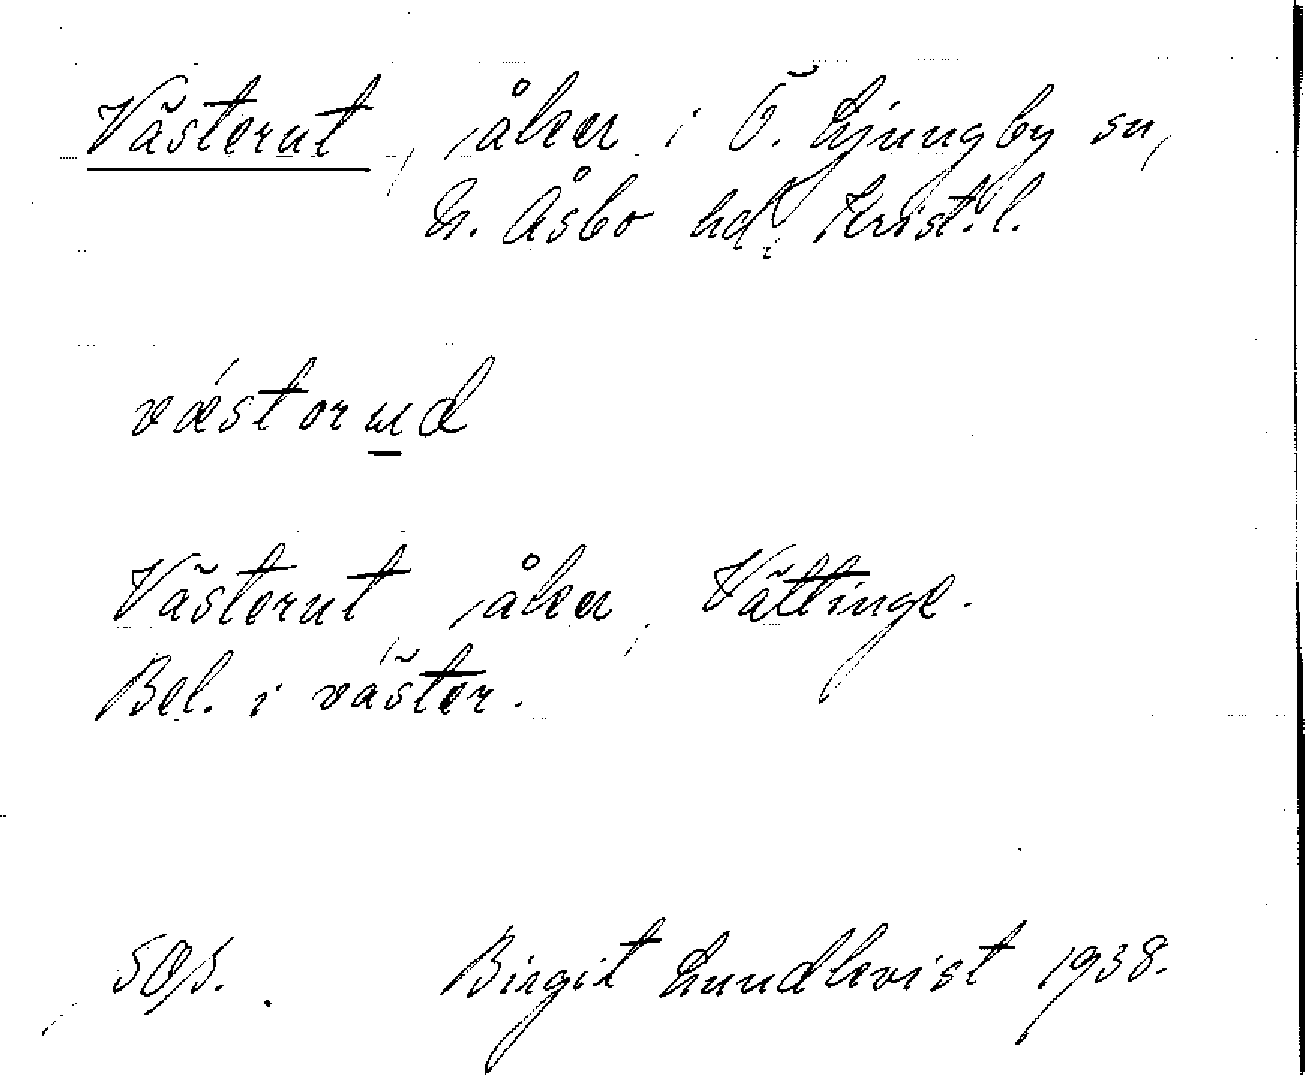 Västerut, åker i Ö. Ljungby sn,
N. Åsbo hd, Krist. l.
vǽstoru̲d
Västerut, åker, Vättinge.
Bel. i väster.
Birgit Lundkvist 1938.